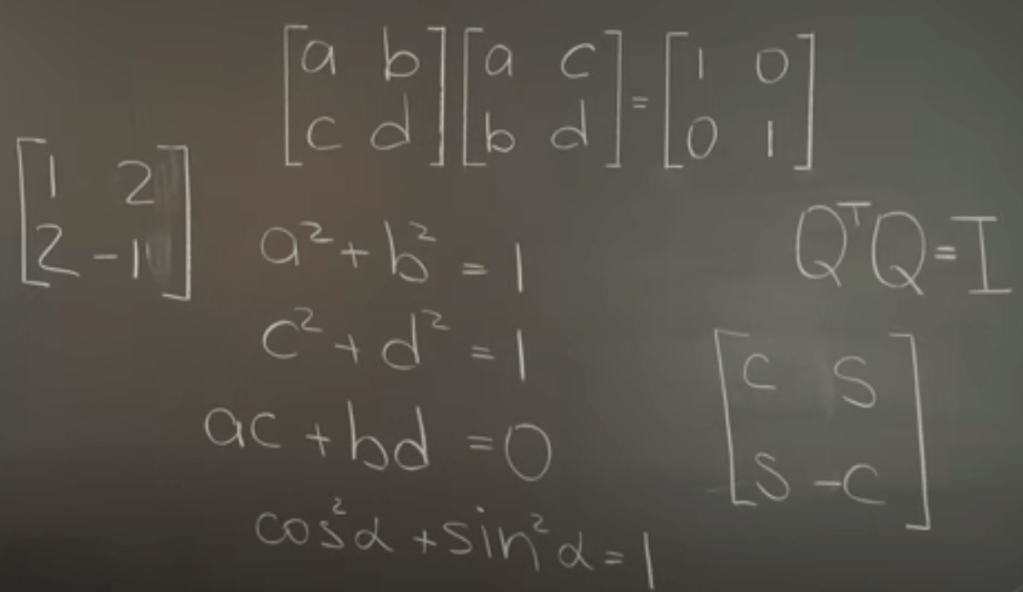 [a b; c d] [a c; b d] = [1 0; 0 1]
[1 2; 2 -1]
a² + b² = 1
c² + d² = 1
ac + bd = 0
cos²α + sin²α = 1
QᵀQ = I
[c s; s -c]